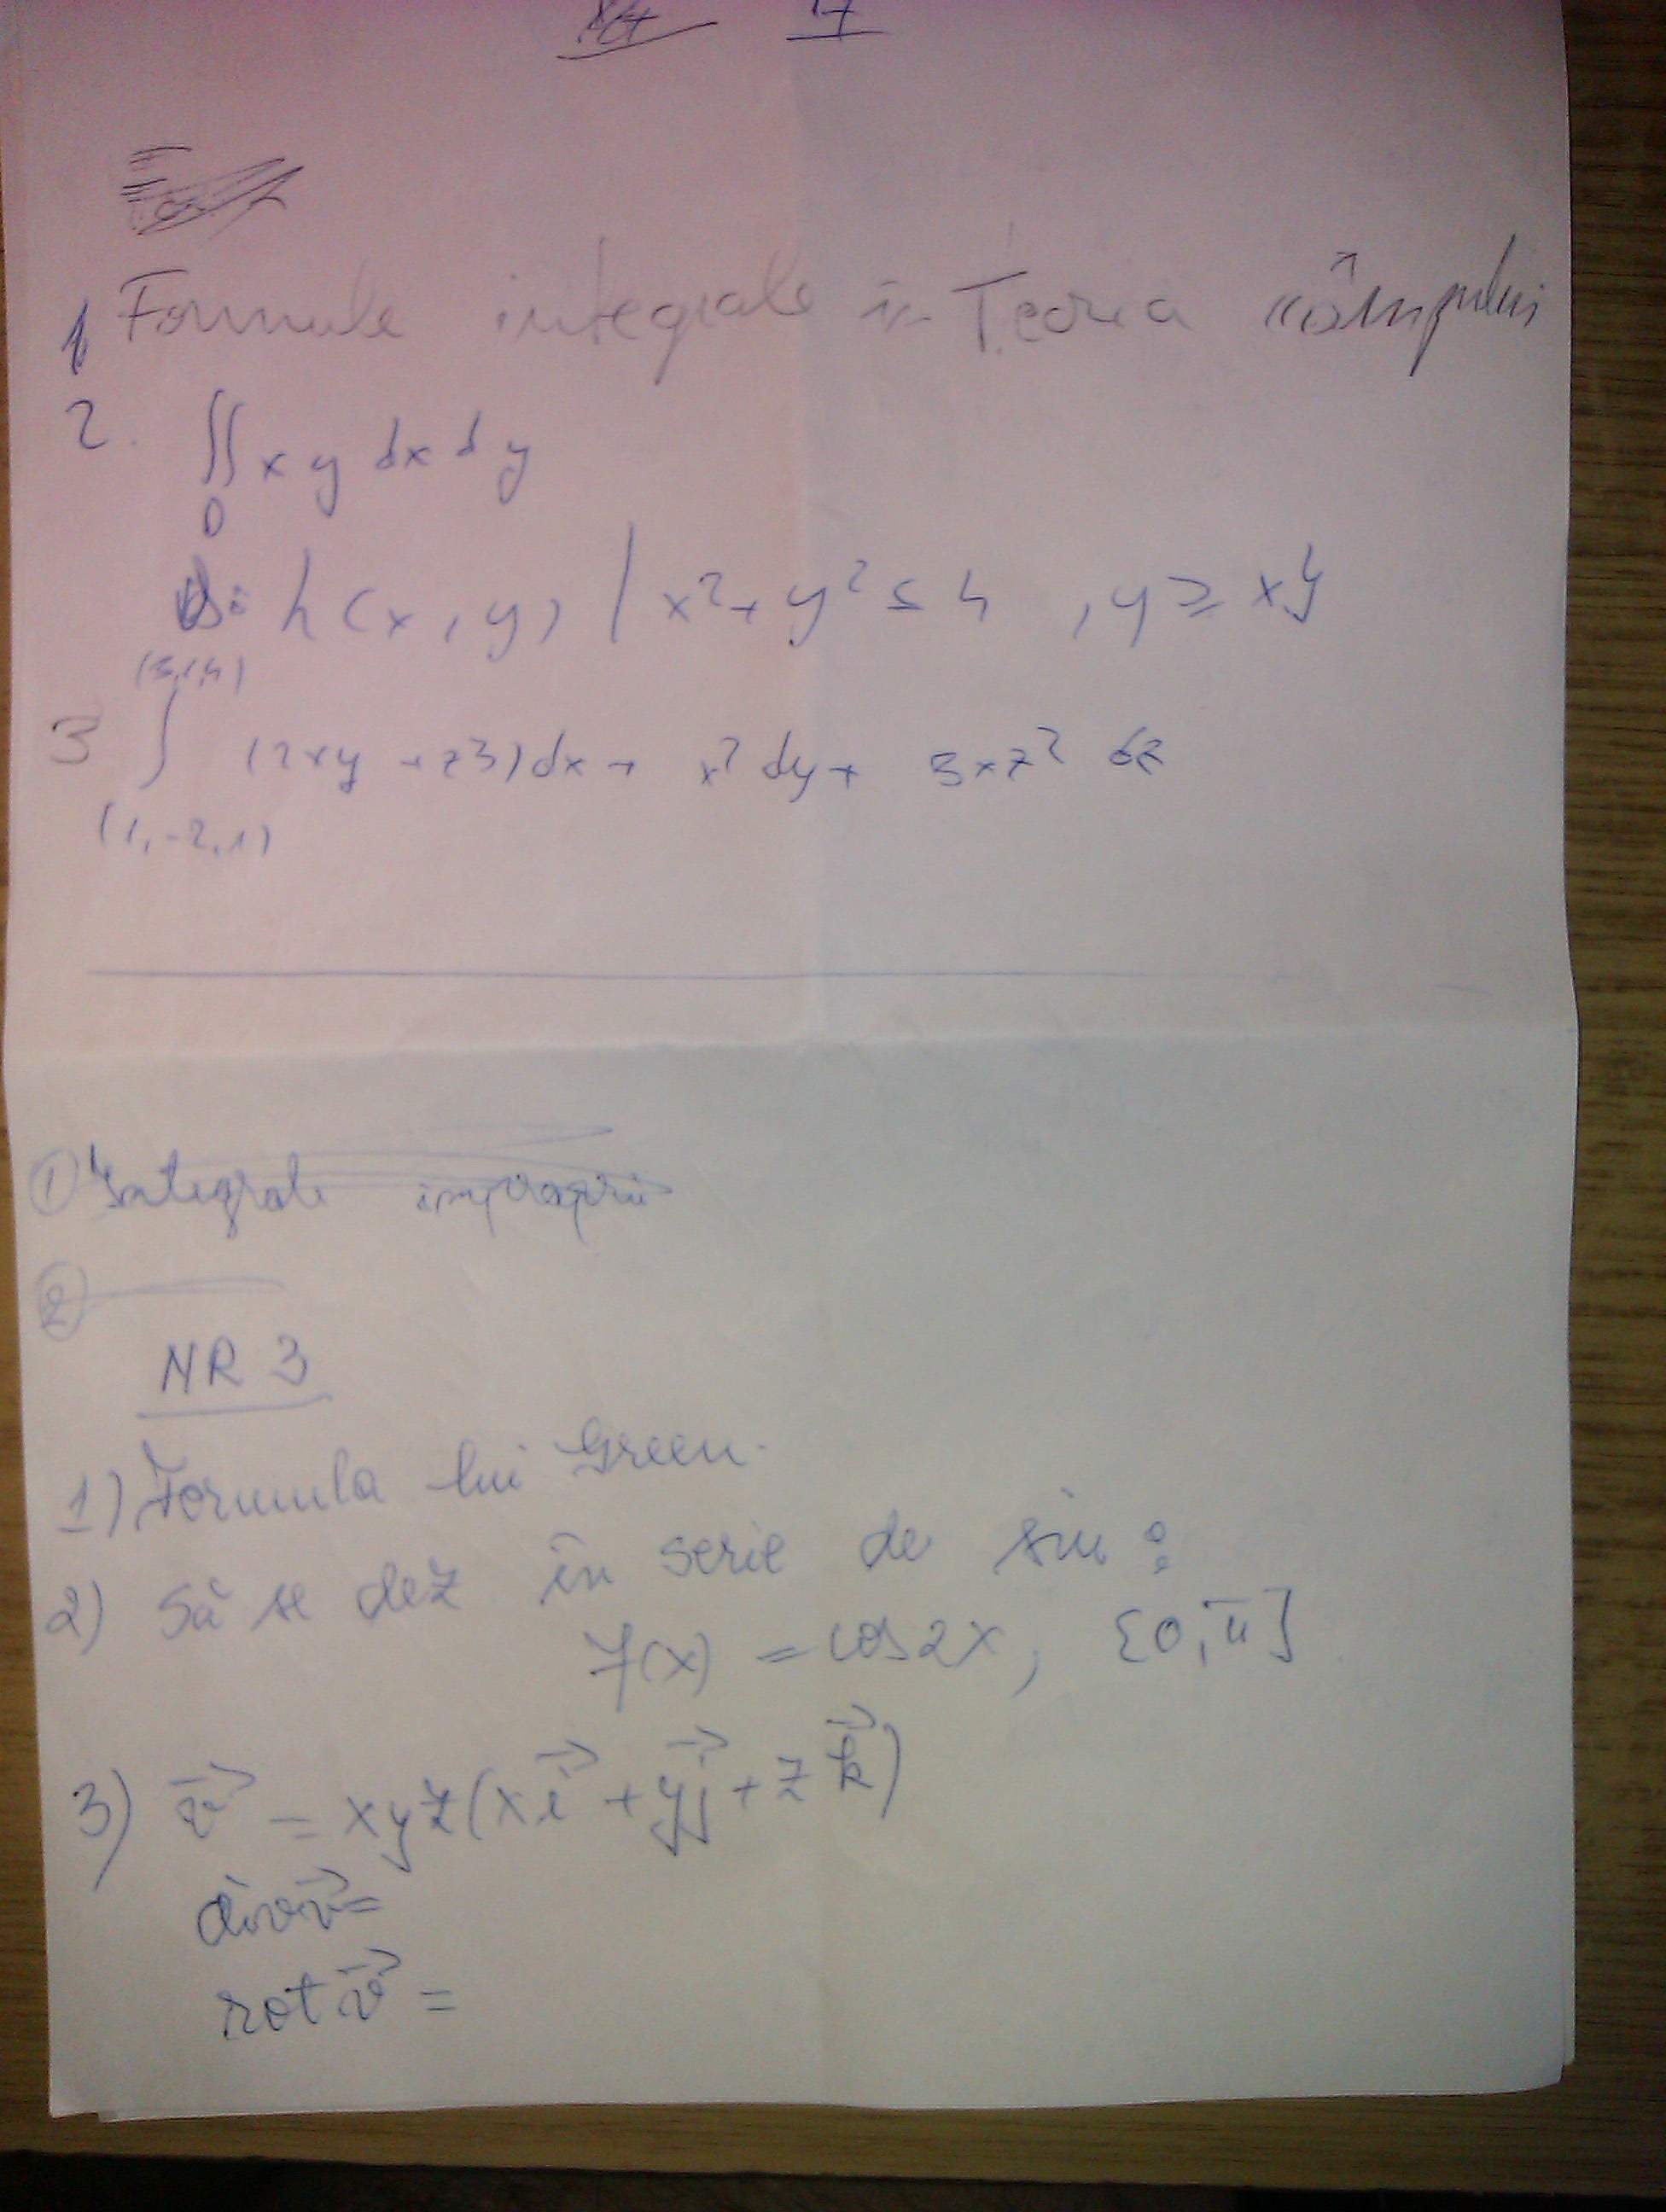 1 Formule integrale în Teoria câmpului
2. ∬ x y dx dy
D
D: { (x, y) | x² + y² ≤ 4 , y ≥ x }
(3,1,4)
3 ∫ (2xy + z³) dx + x² dy + 3xz² dz
(1, -2, 1)
① Integrale improprii
②
NR 3
1) Formula lui Green.
2) Să se dez. în serie de sin :
f(x) = cos2x, [0, π]
3) v⃗ = xyz(x i⃗ + y j⃗ + z k⃗)
div v⃗ =
rot v⃗ =